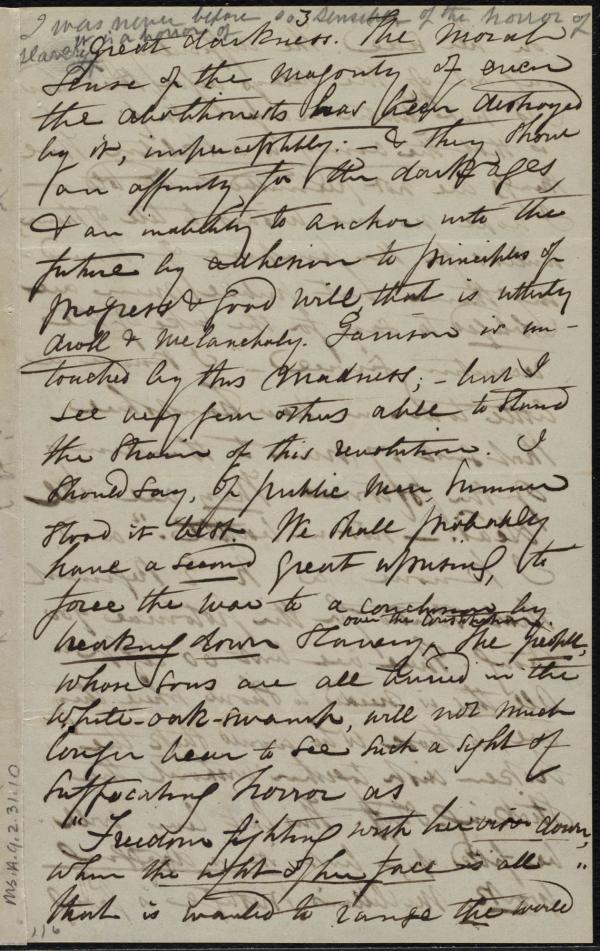 I was never before so sensible of the horror of
slavery is a horror of
3
great darkness. The moral
sense of the majority of even
the abolitionists has been destroyed
by it, imperceptibly: — & they show
an affinity for the dark ages,
& an inability to anchor into the
future by adhesion to principles of
progress & good will that is utterly
droll & melancholy. Garrison is un-
touched by this madness; — but I
see very few others able to stand
the strain of this revolution. I
should say, of public men, Sumner
stood it best. We shall probably
have a second great uprising, to
force the war to a conclusion by
over the Constitution.
breaking down Slavery, The people,
whose sons are all buried in the
White-oak-swamp, will not much
longer bear to see such a sight of
suffocating horror as
"Freedom fighting with her visor down,
when the sight of her face is all"
that is wanted to range the world
Ms.A.9.2.31.10
116